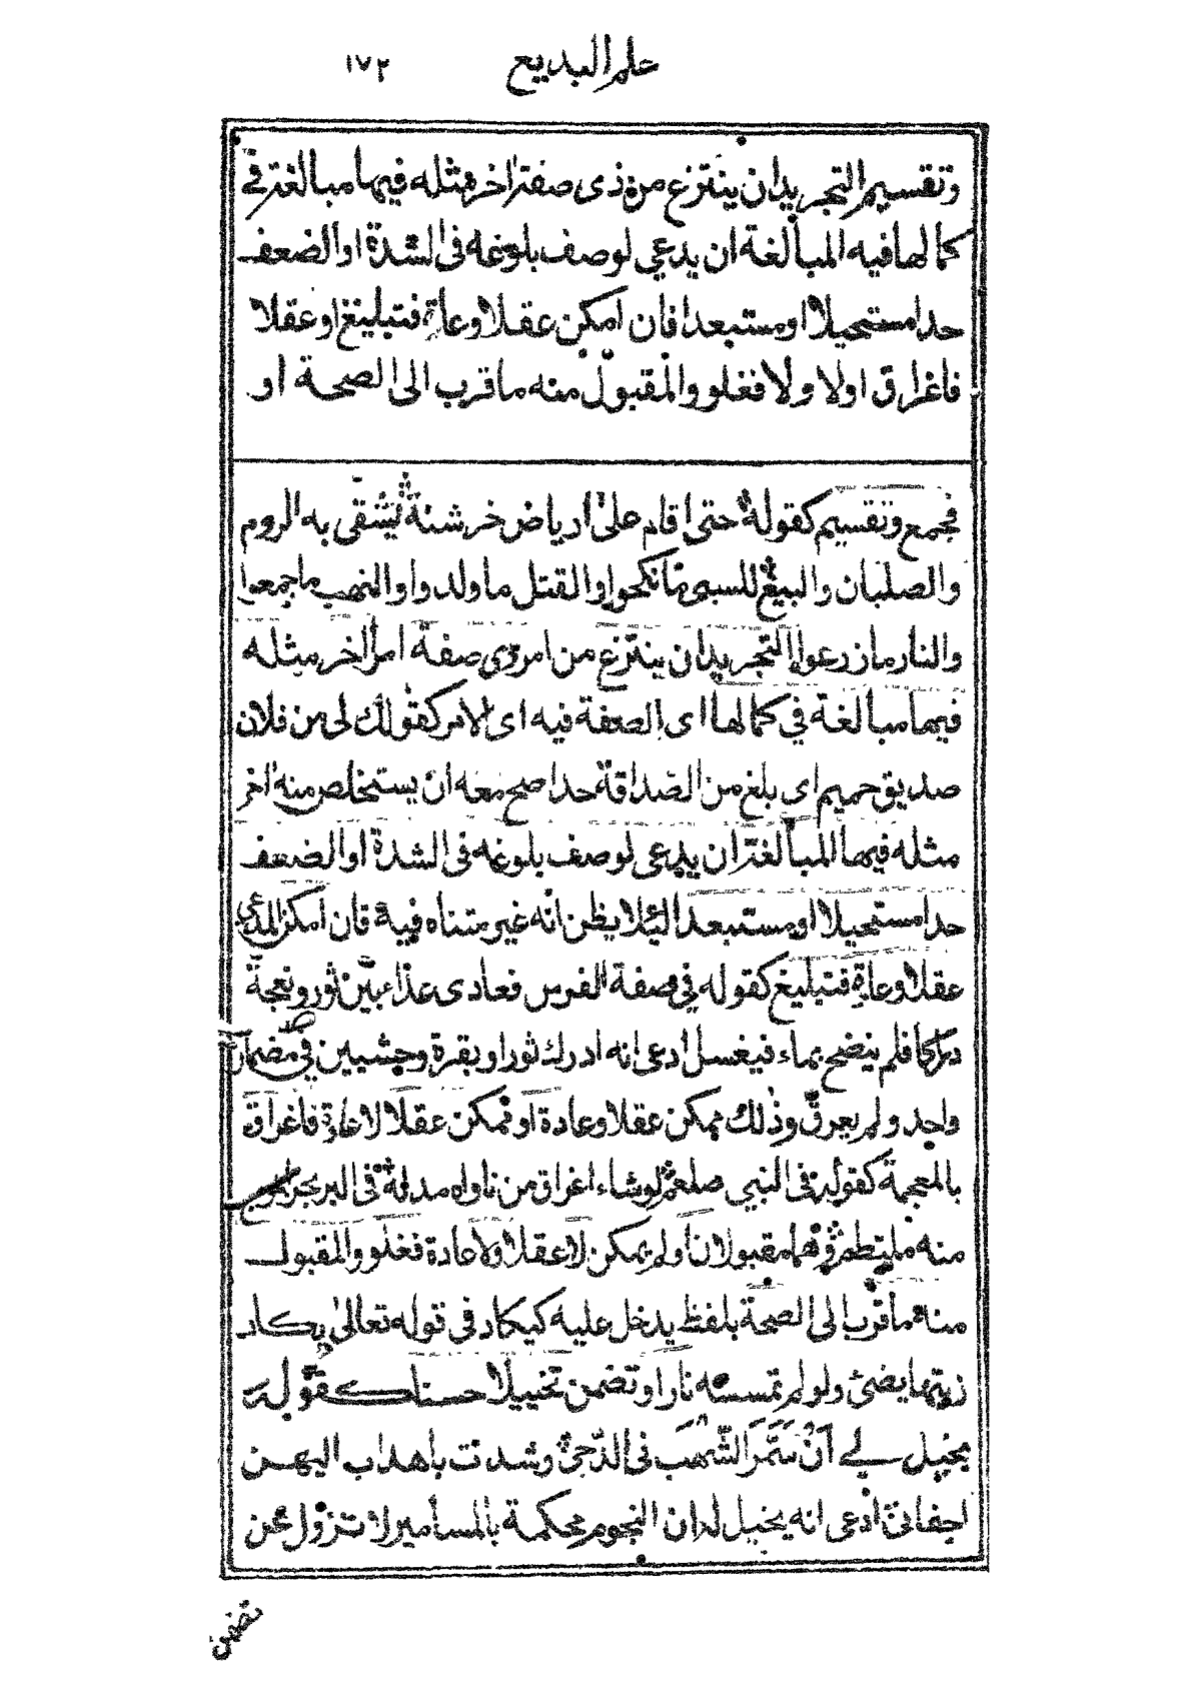 علم البديع ١٧٢
وتقسيم التجريد ان ينتزع من ذى صفة اخر مثله فيها مبالغة فى
كمالها فيه المبالغة ان يدعى لوصف بلوغه فى الشدة او الضعف
حدا مستحيلا او مستبعدا فان امكن عقلا وعادة فتبليغ او عقلا
فاغراق اولا ولا فغلو والمقبول منه ما قرب الى الصحة او
فجمع وتقسيم كقوله حتى اقام على ارباض خرشنة تشقى به الروم
والصلبان والبيع للسبى ما نكحوا والقتل ما ولدوا والنهب ما جمعوا
والنار ما زرعوا التجريد ان ينتزع من امر ذى صفة امر اخر مثله
فيها مبالغة في كمالها اى الصفة فيه اى الامر كقولك لى من فلان
صديق حميم اى بلغ من الصداقة حدا صح معه ان يستخلص منه اخر
مثله فيها المبالغة ان يدعى لوصف بلوغه فى الشدة او الضعف
حدا مستحيلا او مستبعدا لئلا يظن انه غير متناه فيه فان امكن المدعى
عقلا وعادة فتبليغ كقوله في صفة الفرس فعادى عداء بين ثور ونعجة
دراكا فلم ينضح بماء فيغسل ادعى انه ادرك ثورا وبقرة وحشيين في مضمار
واحد ولم يعرق وذلك ممكن عقلا وعادة او ممكن عقلا لا عادة فاغراق
بالمعجمة كقوله فى النبي صلعم لو شاء اغراق من ناواه مد له فى البر بحرا بموج
منه ملتطم وهما مقبولان او لم يمكن لا عقلا ولا عادة فغلو والمقبول
منه ما قرب الى الصحة بلفظ يدخل عليه كيكاد فى قوله تعالى يكاد
زيتها يضئ ولو لم تمسسه نار او تضمن تخييلا حسنا كقوله
يخيل لي أن سمر الشهب فى الدجى وشدت باهداب اليهن
اجفانى ادعى انه يخيل له ان النجوم محكمة بالمسامير لا تزول عن